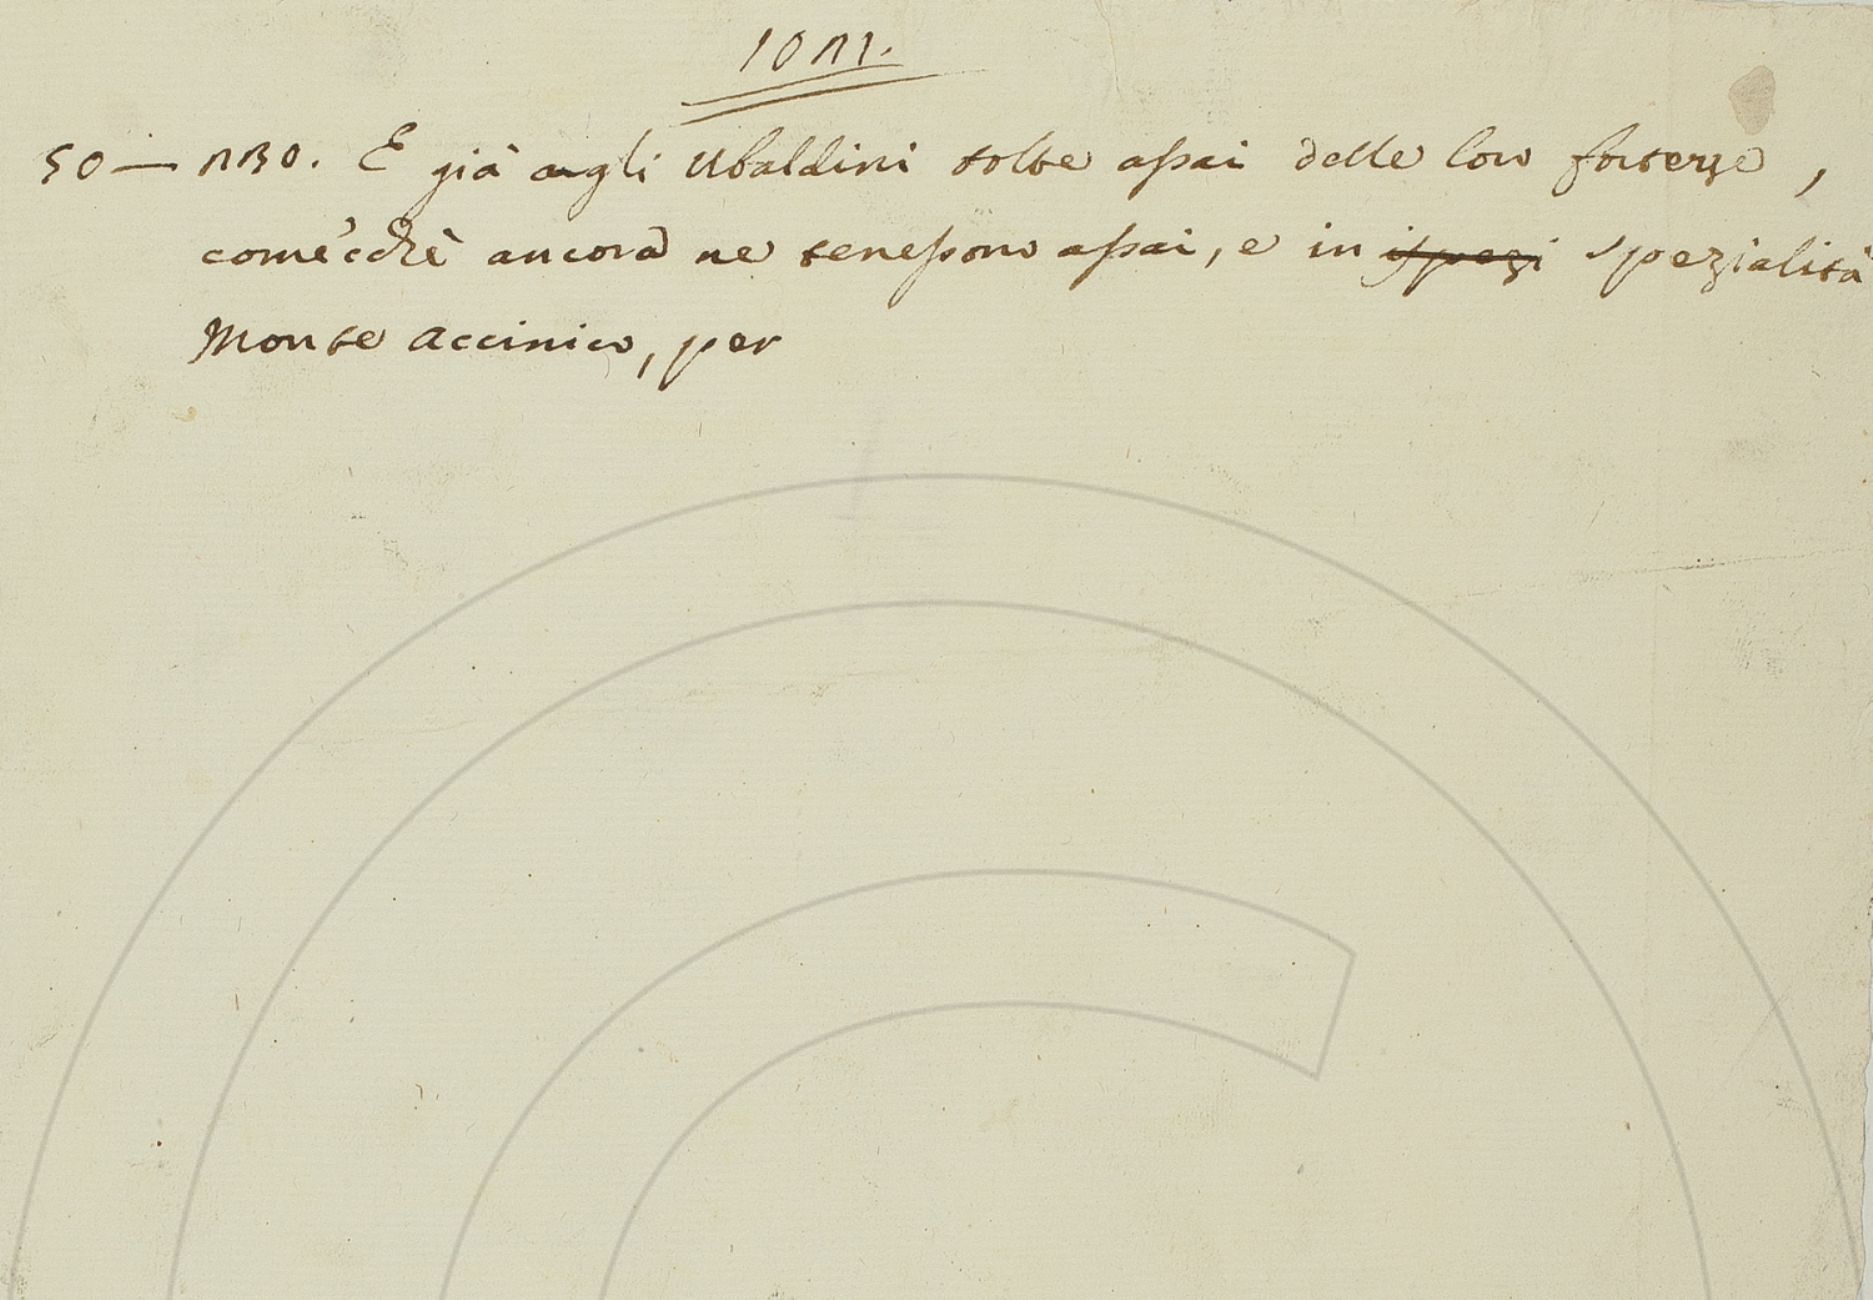 50 — E già agli Ubaldini tolte assai delle loro fortezze,
comecchè ancora ne tenessono assai, e in ispezi spezialità
Monte Accinico, per